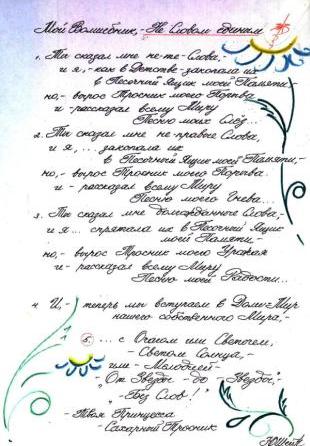 Мой Волшебник, - Не Словом единым
1. Ты сказал мне не-те-Слова, -
и я, - как в Детстве - закопала их
в Песочный Ящик моей Памяти, -
но, - вырос Тросник моего Порыва
и - рассказал всему Миру
Песню моих Слёз...
2. Ты сказал мне не-правые Слова,
и я, ... закопала их
в Песочный Ящик моей Памяти, -
но, - вырос Тросник моего Порыва
и - рассказал всему Миру
Песню моего Гнева...
3. Ты сказал мне долгожданные Слова,
и я... спрятала их в Песочный Ящик
моей Памяти, -
но, - вырос Тросник моего Урожая
и - рассказал всему Миру
Песню моей Радости...
4. И, - теперь мы вступаем в Долги-Мир
нашего собственного Мира, -
5. ... с Очагом или Светочем,
- Светом Солнца, -
- Мелодией -
- От Звезды - до - Звезды, -
- "Без Слов!"
- Твоя Принцесса
- Сахарный Тросник